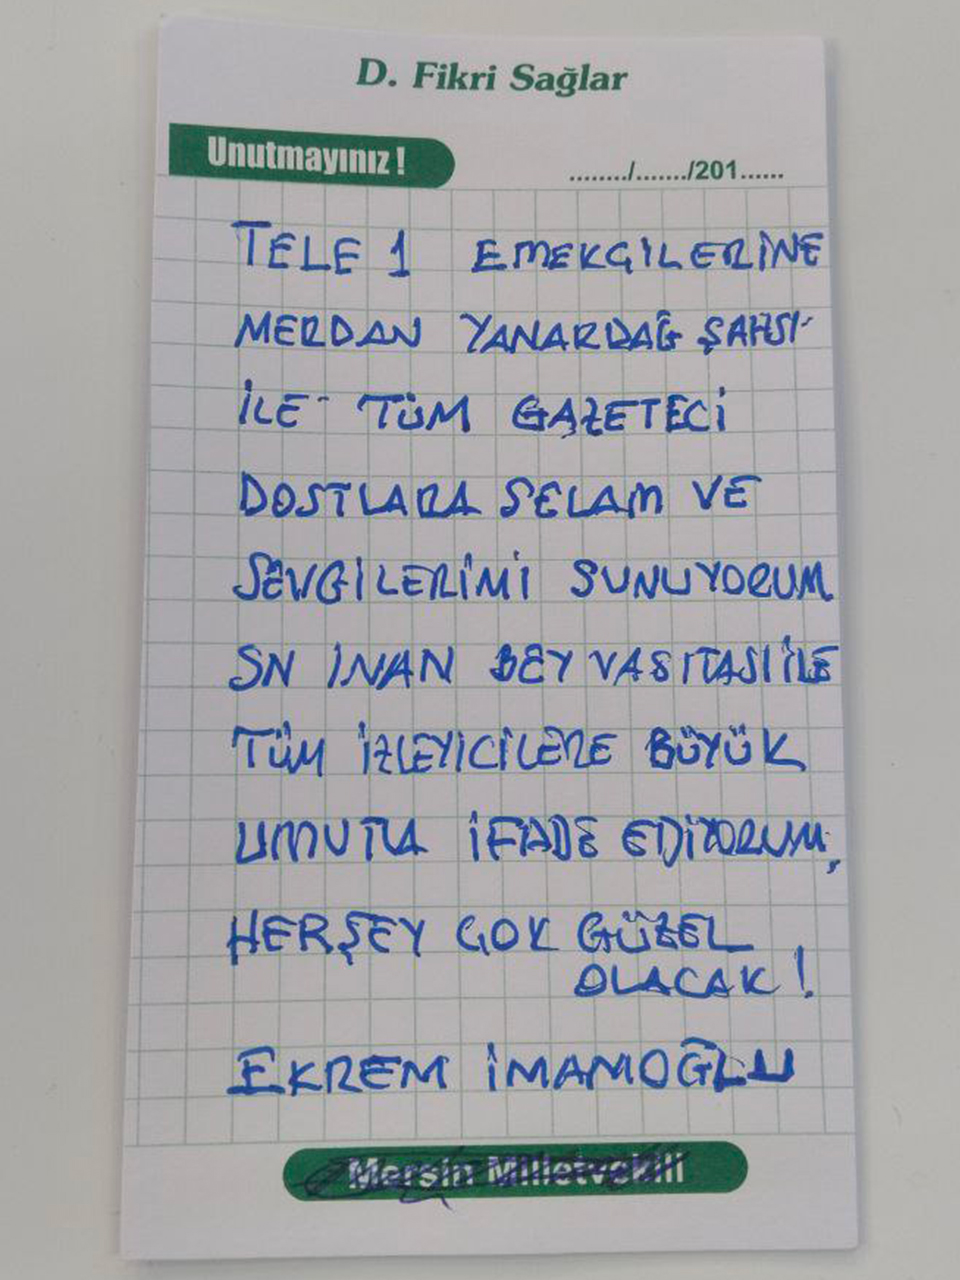 D. Fikri Sağlar
Unutmayınız !
......../......./201......
TELE 1 EMEKÇİLERİNE
MERDAN YANARDAĞ ŞAHSI
İLE TÜM GAZETECİ
DOSTLARA SELAM VE
SEVGİLERİMİ SUNUYORUM
SN İNAN BEY VASITASI İLE
TÜM İZLEYİCİLERE BÜYÜK
UMUTLA İFADE EDİYORUM,
HERŞEY ÇOK GÜZEL
OLACAK !
EKREM İMAMOĞLU
Mersin Milletvekili